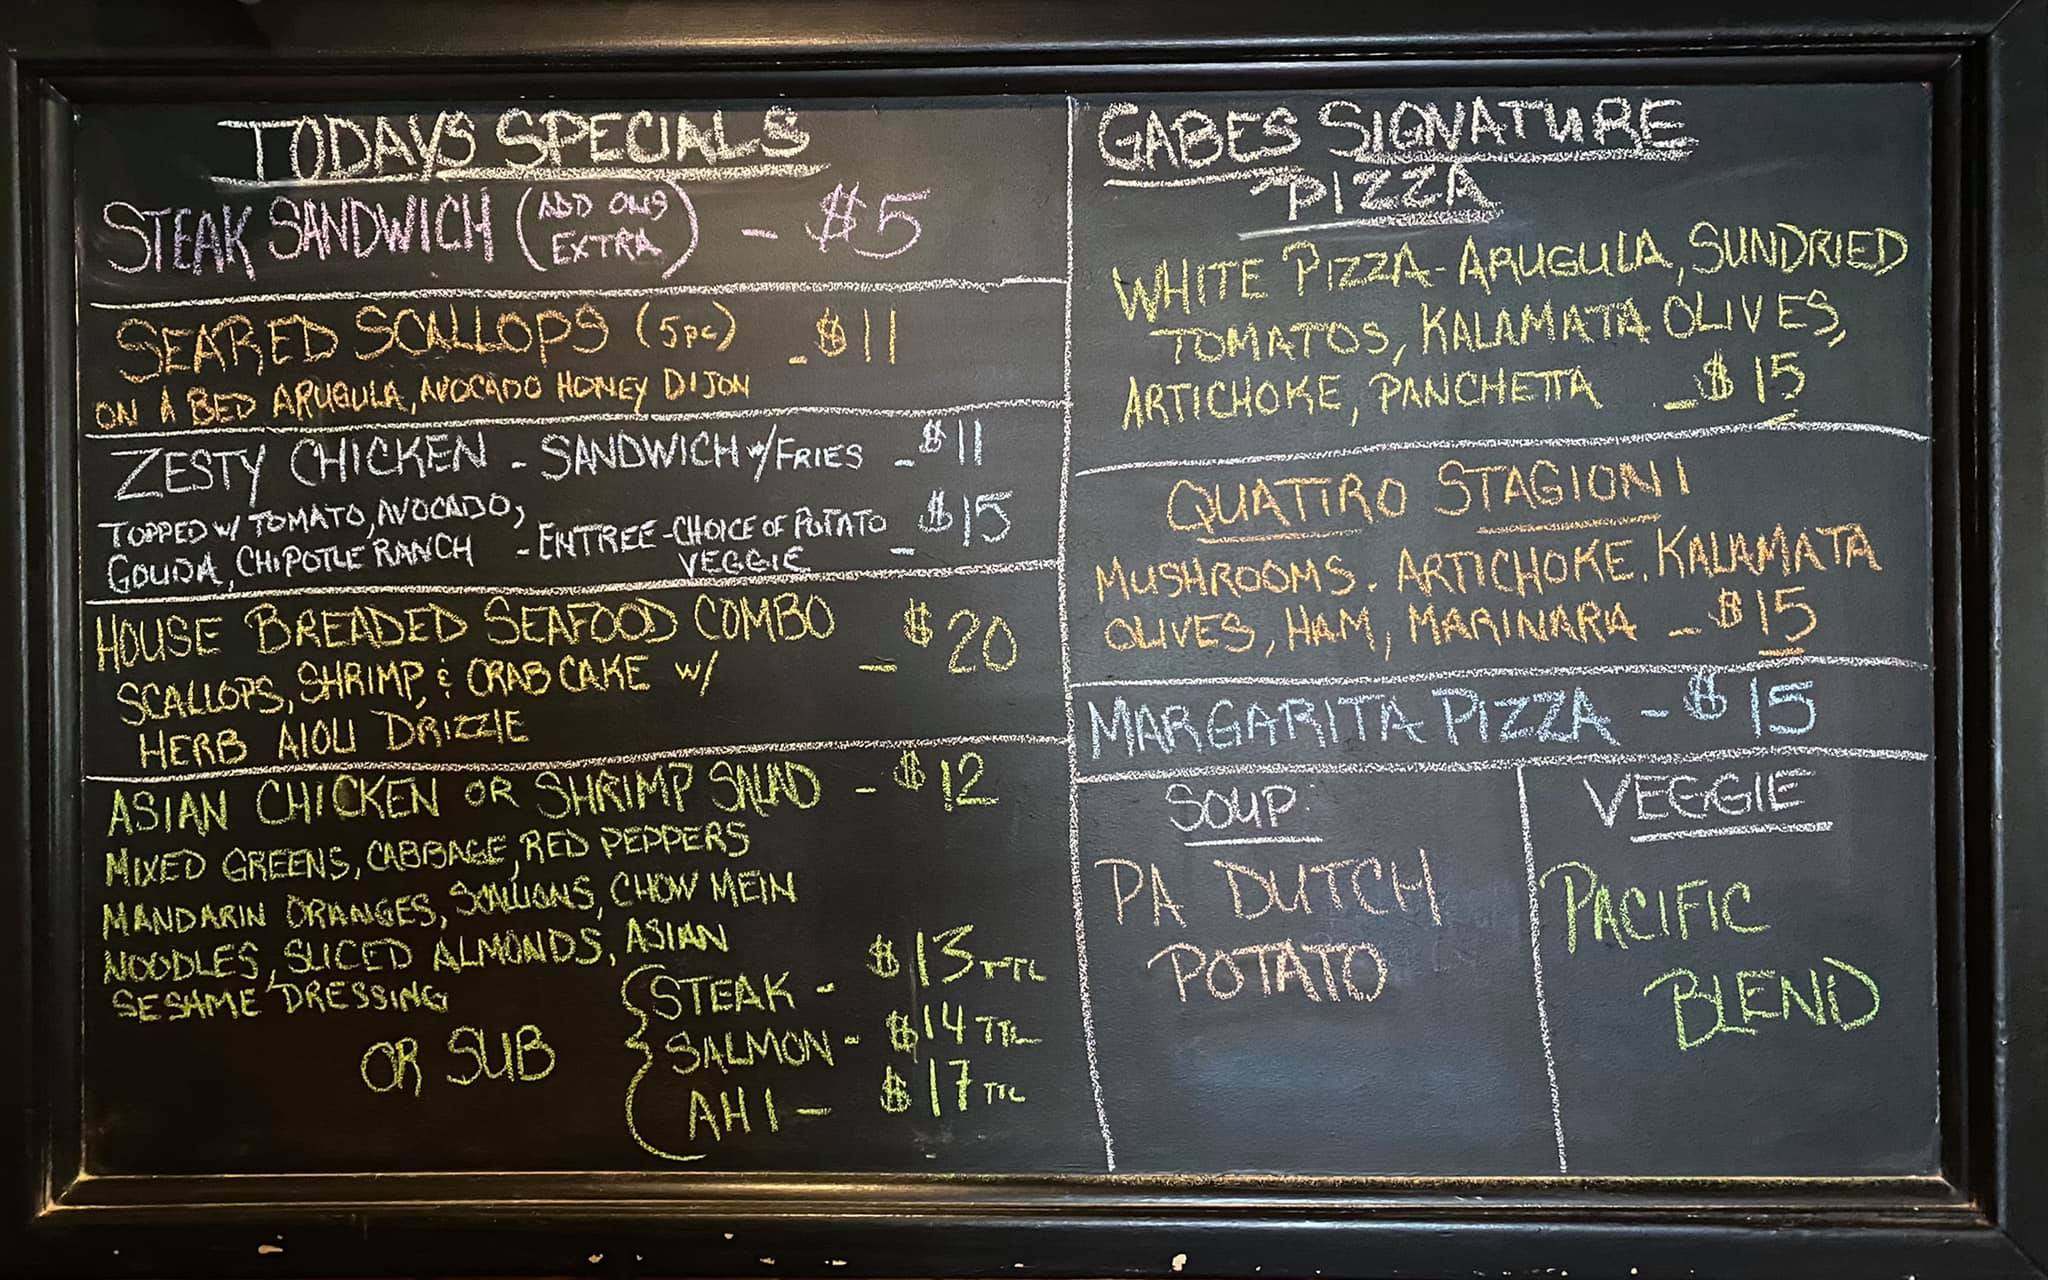 TODAYS SPECIALS
STEAK SANDWICH (ADD ONS EXTRA) - $5
SEARED SCALLOPS (5pc) - $11
ON A BED ARUGULA, AVOCADO HONEY DIJON
ZESTY CHICKEN - SANDWICH w/ FRIES - $11
TOPPED w/ TOMATO, AVOCADO,
GOUDA, CHIPOTLE RANCH - ENTREE - CHOICE OF POTATO VEGGIE - $15
HOUSE BREADED SEAFOOD COMBO - $20
SCALLOPS, SHRIMP, & CRAB CAKE w/
HERB AIOLI DRIZZLE
ASIAN CHICKEN OR SHRIMP SALAD - $12
MIXED GREENS, CABBAGE, RED PEPPERS
MANDARIN ORANGES, SCALLIONS, CHOW MEIN
NOODLES, SLICED ALMONDS, ASIAN
SESAME DRESSING
OR SUB
STEAK - $13 TTL
SALMON - $14 TTL
AHI - $17 TTL
GABES SIGNATURE
PIZZA
WHITE PIZZA - ARUGULA, SUNDRIED
TOMATOS, KALAMATA OLIVES,
ARTICHOKE, PANCHETTA - $15
QUATTRO STAGIONI
MUSHROOMS. ARTICHOKE. KALAMATA
OLIVES, HAM, MARINARA - $15
MARGARITA PIZZA - $15
SOUP
PA DUTCH
POTATO
VEGGIE
PACIFIC
BLEND